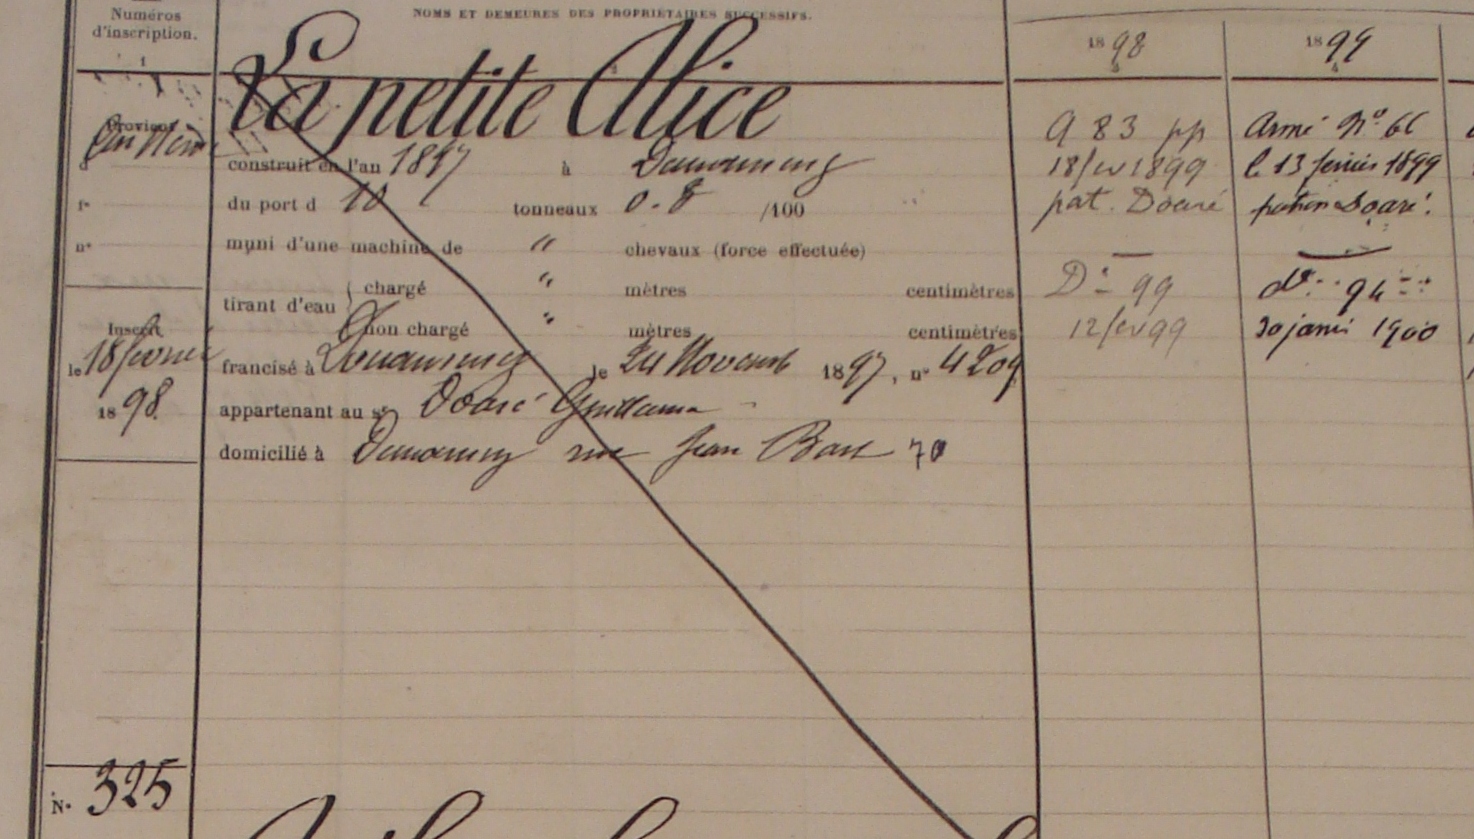 NOMS ET DEMEURES DES PROPRIÉTAIRES SUCCESSIFS.
Numéros
d'inscription.
1
1898
3
1899
4
La petite Alice
Provient
d
fº
nº
construit en l'an 1897 à Douarnenez
du port d 10 tonneaux 0.8 /100
muni d'une machine de " chevaux (force effectuée)
tirant d'eau
chargé " mètres centimètres
non chargé " mètres centimètres
Inscrit
le 18 février
1898.
francisé à Douarnenez le 24 Novemb 1897, nº 4209
appartenant au sr Doaré Guillaume
domicilié à Douarnenez rue Jean Bart 70
A 83 pp
18/ 1899
pat. Doaré
Dº 99
12/fév 99
Armé Nº 66
le 13 février 1899
patron Doaré.
dº 94
30 janvi 1900
Nº 325